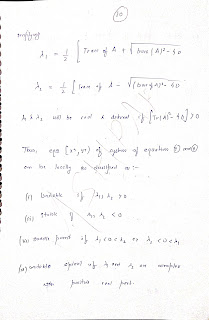 10
λ₁ = 1/2 [ Trace of A + √(trace of A)² - 4D
λ₁ = 1/2 [ Trace of A - √(trace of A)² - 4D
λ₁ λ₂ will be real & distinct if [Tr(A)]² - 4D] > 0
Thus, eqm [x*, y*] of system of equation and
can be locally classified as :-
(i) Unstable if λ₁, λ₂ > 0
(ii) Stable if λ₁, λ₂ < 0
(iii) Saddle point if λ₁ < 0 < λ₂ or λ₂ < 0 < λ₁
(iv) unstable spiral if λ₁ and λ₂ are complex
with positive real part.